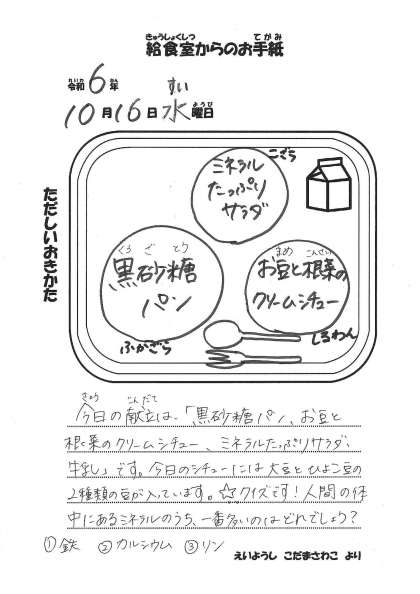 きゅうしょくしつ てがみ
給食室からのお手紙
れいわ ねん すい
令和6年
10月16日水曜日
ようび
ただしいおきかた
こざら
ミネラル
たっぷり
サラダ
くろ ざ とう
黒砂糖
パン
ふかざら
まめ こんさい
お豆と根菜の
クリームシチュー
しるわん
きょう こんだて
今日の献立は、「黒砂糖パン、お豆と
根菜のクリームシチュー、ミネラルたっぷりサラダ、
牛乳」です。今日のシチューには大豆とひよこ豆の
2種類の豆が入っています。☆クイズです！人間の体
中にあるミネラルのうち、一番多いのはどれでしょう？
①鉄 ②カルシウム ③リン
えいようし こだまさわこ より